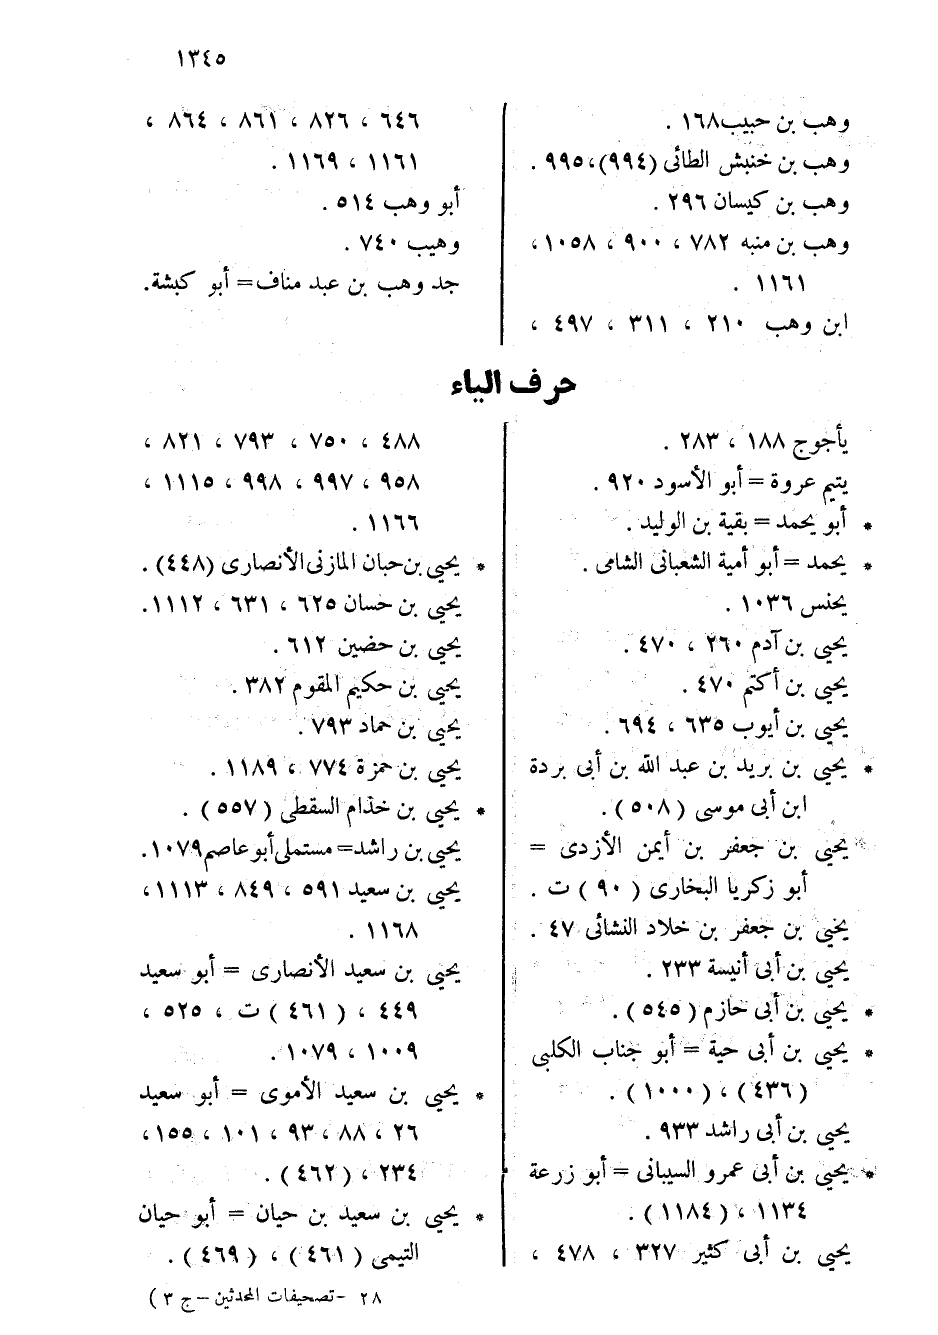 ١٣٤٥
وهب بن حبيب ١٦٨ .
وهب بن خنبش الطائى (٩٩٤)، ٩٩٥ .
وهب بن كيسان ٢٩٦ .
وهب بن منبه ٧٨٢ ، ٩٠٠ ، ١٠٥٨ ،
١١٦١ .
ابن وهب ٢١٠ ، ٣١١ ، ٤٩٧ ،
٦٤٦ ، ٨٢٦ ، ٨٦١ ، ٨٦٤ ،
١١٦١ ، ١١٦٩ .
أبو وهب ٥١٤ .
وهيب ٧٤٠ .
جد وهب بن عبد مناف = أبو كبشة.
حرف الياء
يأجوج ١٨٨ ، ٢٨٣ .
يتيم عروة = أبو الأسود ٩٢٠ .
* أبو يحمد = بقية بن الوليد .
* يحمد = أبو أمية الشعبانى الشامى .
يحنس ١٠٣٦ .
يحيى بن آدم ٢٦٠ ، ٤٧٠ .
يحيى بن أكتم ٤٧٠ .
يحيى بن أيوب ٦٣٥ ، ٦٩٤ .
* يحيى بن بريد بن عبد الله بن أبى بردة
ابن أبى موسى ( ٥٠٨ ) .
* يحيى بن جعفر بن أيمن الأزدى =
أبو زكريا البخارى ( ٩٠ ) ت .
يحيى بن جعفر بن خلاد النشائى ٤٧ .
يحيى بن أبى أنيسة ٢٣٣ .
* يحيى بن أبى حازم ( ٥٤٥ ) .
* يحيى بن أبى حية = أبو جناب الكلبى
( ٤٣٦ ) ، ( ١٠٠٠ ) .
يحيى بن أبى راشد ٩٣٣ .
* يحيى بن أبى عمرو السيبانى = أبو زرعة
١١٣٤ ، ( ١١٨٤ ) .
يحيى بن أبى كثير ٣٢٧ ، ٤٧٨ ،
٤٨٨ ، ٧٥٠ ، ٧٩٣ ، ٨٢١ ،
٩٥٨ ، ٩٩٧ ، ٩٩٨ ، ١١١٥ ،
١١٦٦ .
* يحيى بن حبان المازنى الأنصارى (٤٤٨) .
يحيى بن حسان ٦٢٥ ، ٦٣١ ، ١١١٢.
يحيى بن حضين ٦١٢ .
يحيى بن حكيم المقوم ٣٨٢ .
يحيى بن حماد ٧٩٣ .
يحيى بن حمزة ٧٧٤ ، ١١٨٩ .
* يحيى بن خذام السقطى ( ٥٥٧ ) .
يحيى بن راشد = مستملى أبو عاصم ١٠٧٩.
يحيى بن سعيد ٥٩١ ، ٨٤٩ ، ١١١٣ ،
١١٦٨ .
يحيى بن سعيد الأنصارى = أبو سعيد
٤٤٩ ، ( ٤٦١ ) ت ، ٥٢٥ ،
١٠٠٩ ، ١٠٧٩ .
* يحيى بن سعيد الأموى = أبو سعيد
٢٦ ، ٨٨ ، ٩٣ ، ١٠١ ، ١٥٥ ،
٢٣٤ ، ( ٤٦٢ ) .
* يحيى بن سعيد بن حيان = أبو حيان
التيمى ( ٤٦١ ) ، ( ٤٦٩ ) .
٢٨ - تصحيفات المحدثين - ج ٣ )